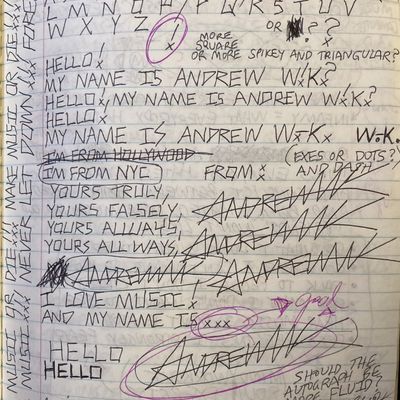 L M N O P Q R S T U V
W X Y Z ! x OR ? ?
MORE
SQUARE
OR MORE SPIKEY AND TRIANGULAR?
HELLO!
MY NAME IS ANDREW W.K.?
HELLO! MY NAME IS ANDREW WxKx?
HELLO x
MY NAME IS ANDREW WxKx W.K.
I'M FROM HOLLYWOOD (EXES OR DOTS?)
I'M FROM NYC FROM x AND DASH
YOURS TRULY,
YOURS FALSELY, ANDREW WK
YOURS ALLWAYS,
YOURS ALL WAYS, ANDREW WK
ANDREW WK ANDREW WK
I LOVE MUSIC!
AND MY NAME IS xxx good
HELLO ANDREW WK
HELLO
SHOULD THE
AUTOGRAPH BE
MORE FLUID?
MUSIC OR DIE!!! MAKE MUSIC OR DIE
MUSIC xxx NEVER LET DOWN